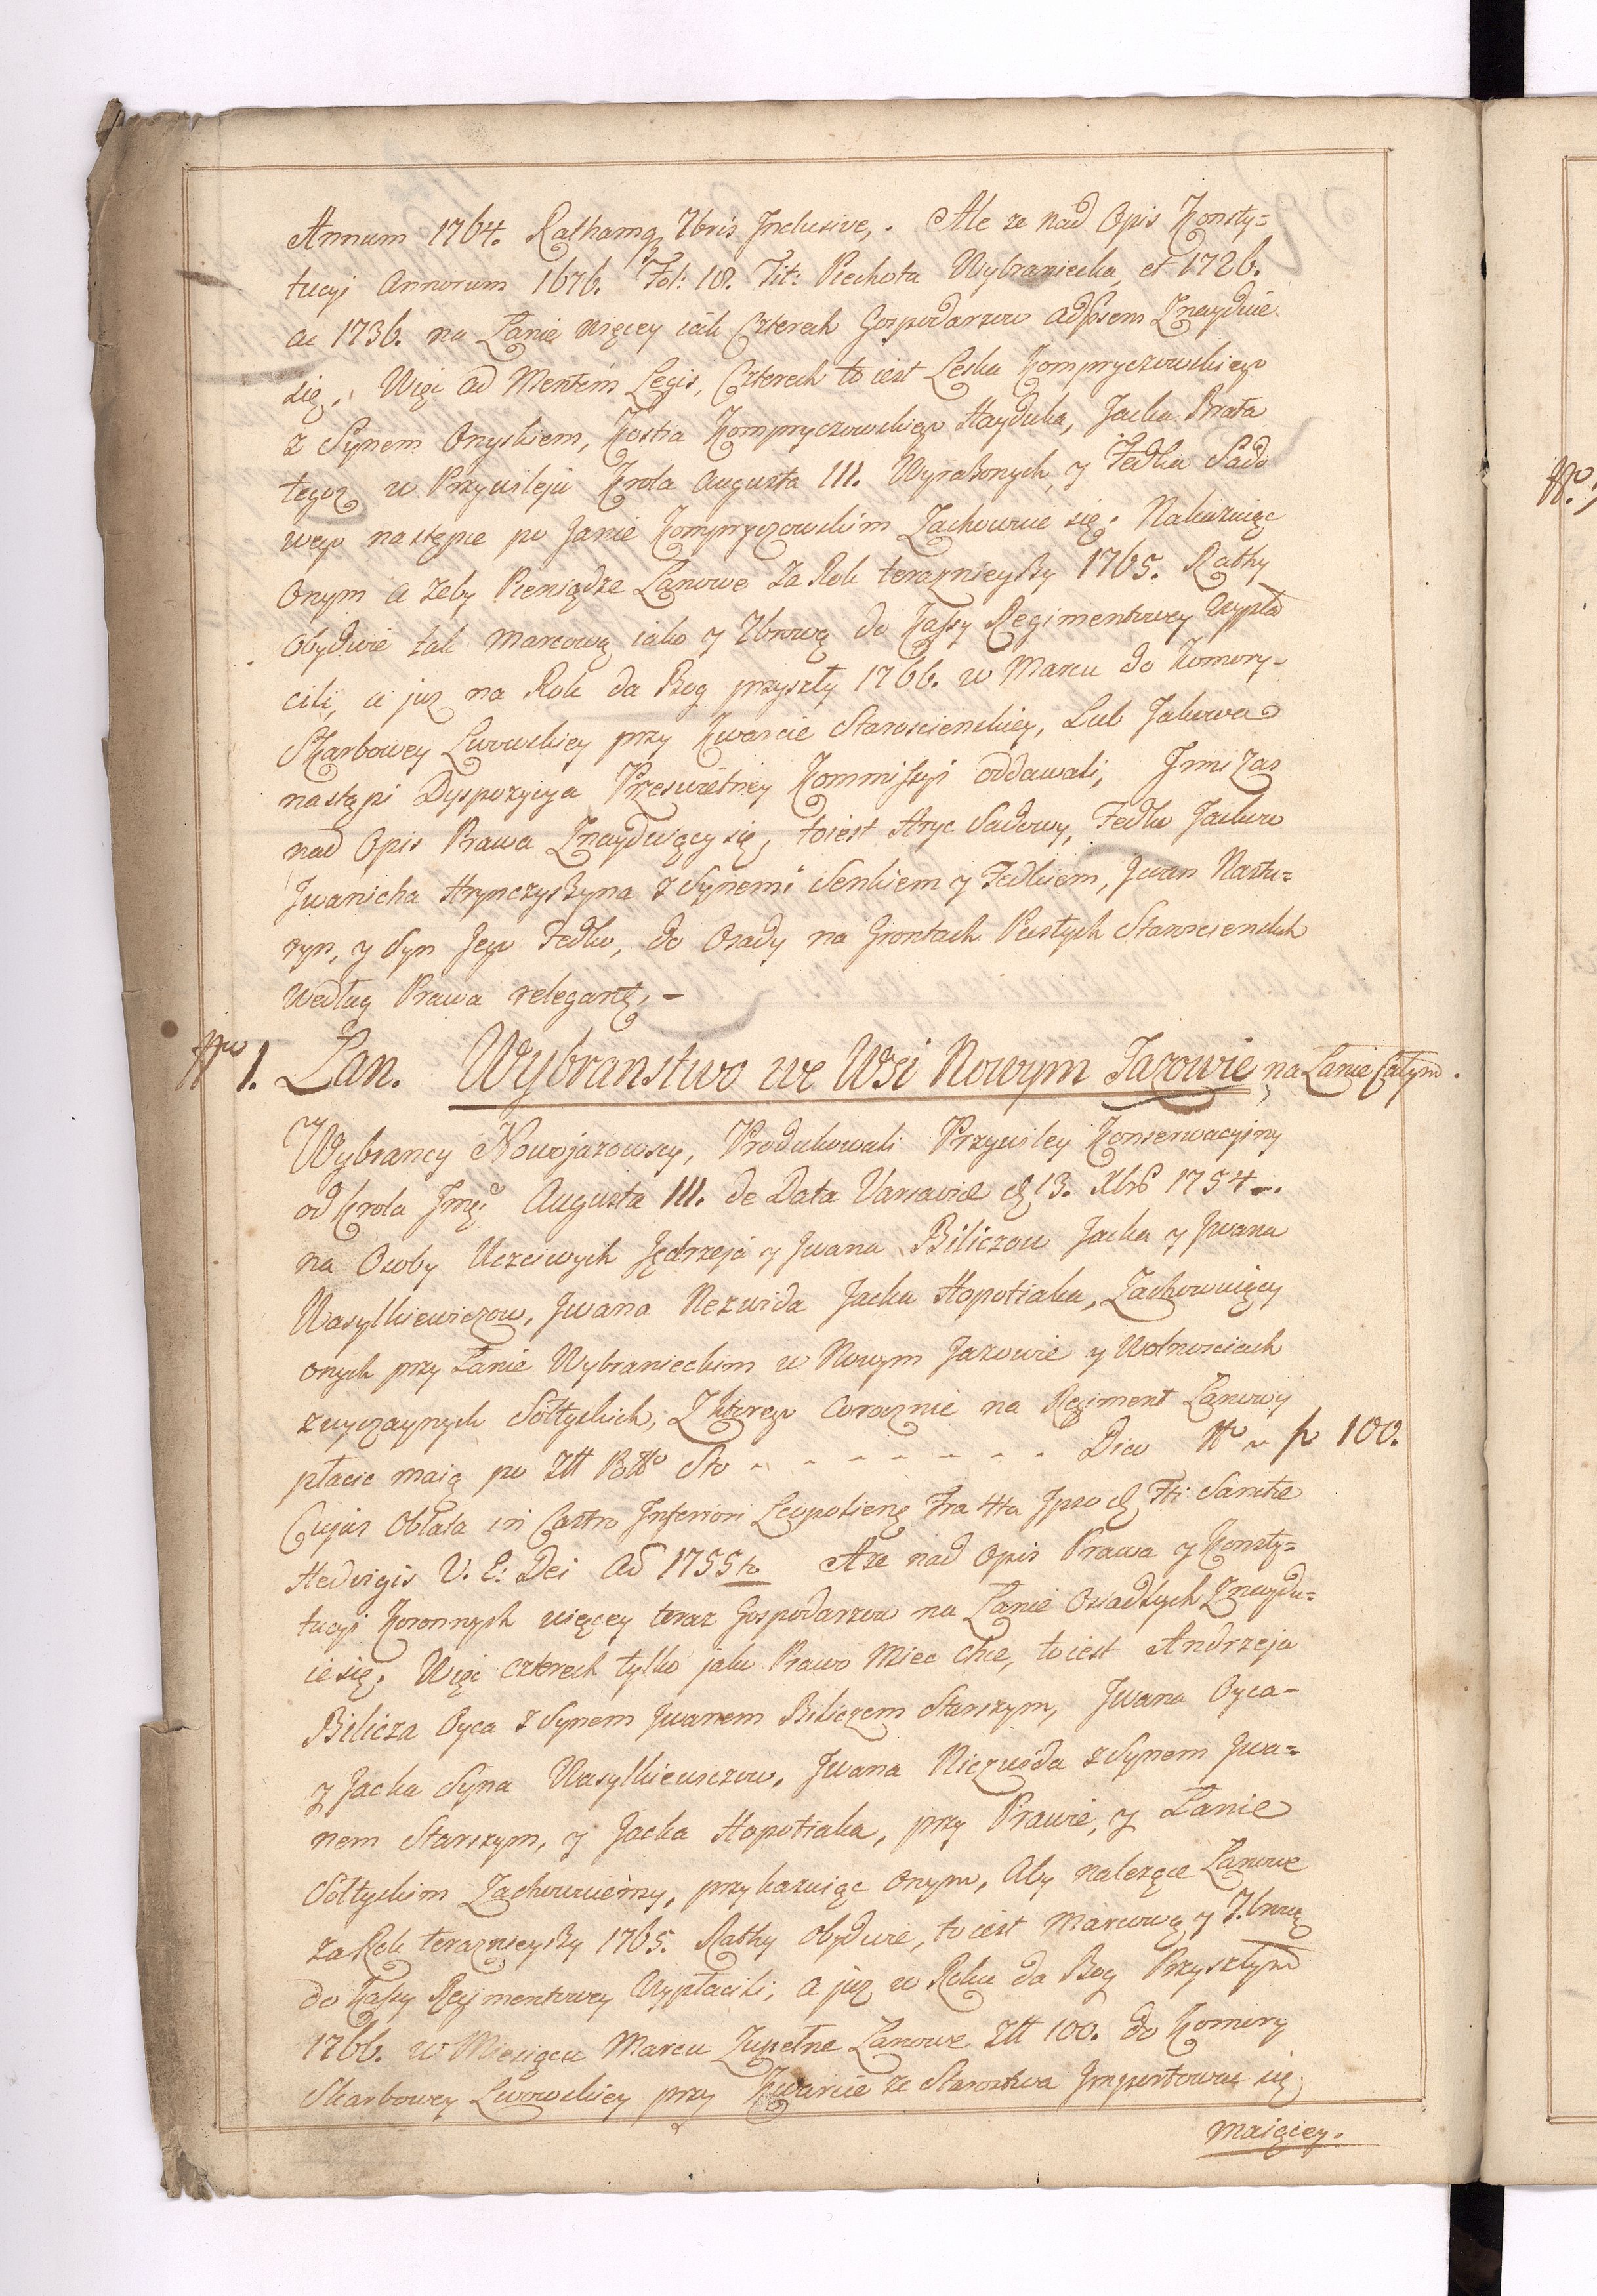 Annum 1764. Rathamq 7bris Inclusive,. Ale ze nad Opis Konsty=
tucyi Annorum 1676. Fol: 18. Tit: Piechota Wybraniecka, et 1726.
ac 1736. na Łanie więcey iak Czterech Gospodarzow adpsens Znayduie
się,. Więc ad Mentem Legis, Czterech to iest Leska Kompryczowskiego
z Synem Onyskiem, Kostia Kompryczowskiego Hayduka, Jacka Brata
tegoz w Przywileju Krola Augusta III. Wyrazonych, y Fedka Sado
wego następce po Janie Kompryczowskim Zachowuie się. Nakazuiąc
Onym a zeby Pieniądze Łanowe za Rok teraznieyszy 1765. Rathy
Obydwie tak Marcową iako y 7brową do Kassy Regimentowey Wypła
cili, a juz na Rok da Bog przyszły 1766. w Marcu do Komory-
Skarbowey Lwowskiey przy Kwarcie Starościenskiey, Lub Jakowa
nastąpi Dyspozycya Prześwietney Kommissyi oddawali, Inni Zas
nad Opis Prawa Znayduiący się, toiest Hryc Sadowy, Fedko Jackow
Iwanicha Hrynczyszyna z Synemi Senkiem y Fedkiem, Iwan Nastu=
ryn, y Syn Jego Fedko, do Osady na Grontach Pustych Starościenskich
według Prawa relegantr,-
Nro 1. Łan. Wybranstwo we Wsi Nowym Jazowie, na Łanie Całym.
Wybrancy Nowojazowscy, Produkowali Przywiley Konserwacyiny
od Krola Jmci Augusta III. de Data Varsaviæ d 13. Xbris 1754.
na Osoby Uczciwych Jędrzeja y Iwana Biliczow Jacka y Iwana
Wasylkiewiczow, Iwana Nezwida Jacka Hapotiaka, Zachowuiący
onych przy Łanie Wybranieckim w Nowym Jazowie y Wolnosciach
zwyczaynych Sołtyskich, Z ktorego Corocznie na Regiment Łanowy
płacic maią po Złł Pollo Sto - - - - - - - - Dico No - fl 100.
Cujus Oblata in Castro Inferiori Leopoliensi Fra 4ta Ipso d Fti Sanctæ
Hedvigis V. E: Dei Ad 1755to A ze nad Opis Prawa y Konsty=
tucyi Koronnych więcey teraz Gospodarzow na Łanie Osiadłych Znaydu=
ie się. Więc czterech tylko jako Prawo Miec chce, to iest Andrzeja
Bilicza Oyca z Synem Iwanem Biliczem Starszym, Iwana Oyca-
y Jacka Syna Wasylkiewiczow, Iwana Niezwida z Synem Iwa=
nem Starszym, y Jacka Hapotiaka, przy Prawie, y Łanie
Sołtyskim Zachowuiemy, przykazuiąc Onym, Aby nalezące Łanowe
za Rok teraznieyszy 1765. Rathy Obydwie, to iest Marcową y 7brową
do Kassy Regimentowey Wypłacili, a juz w Roku da Bog Przyszłym
1766. w Miesiącu Marcu Zupełne Łanowe Złł 100. do Komory
Skarbowey Lwowskiey przy Kwarcie ze Starostwa Importować się
maiącey.